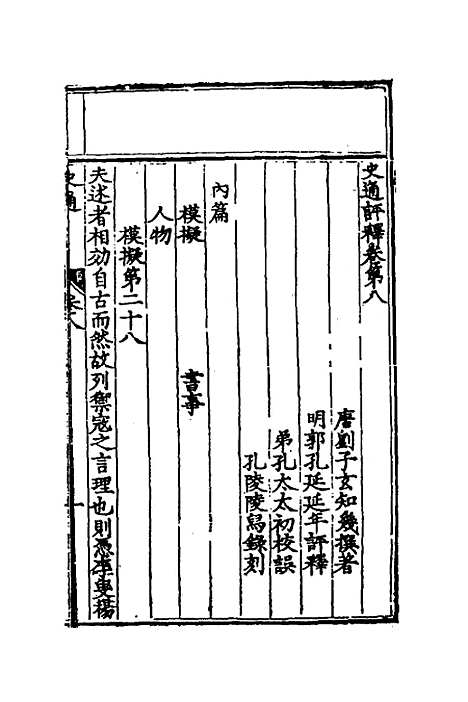 史通評釋卷第八
唐劉子玄知幾撰著
明郭孔延延年評釋
弟孔太太初校誤
孔陵陵舄錄刻
內篇
模擬 書事
人物
模擬第二十八
夫述者相効自古而然故列禦寇之言理也則憑李叟楊
史通 卷八 一